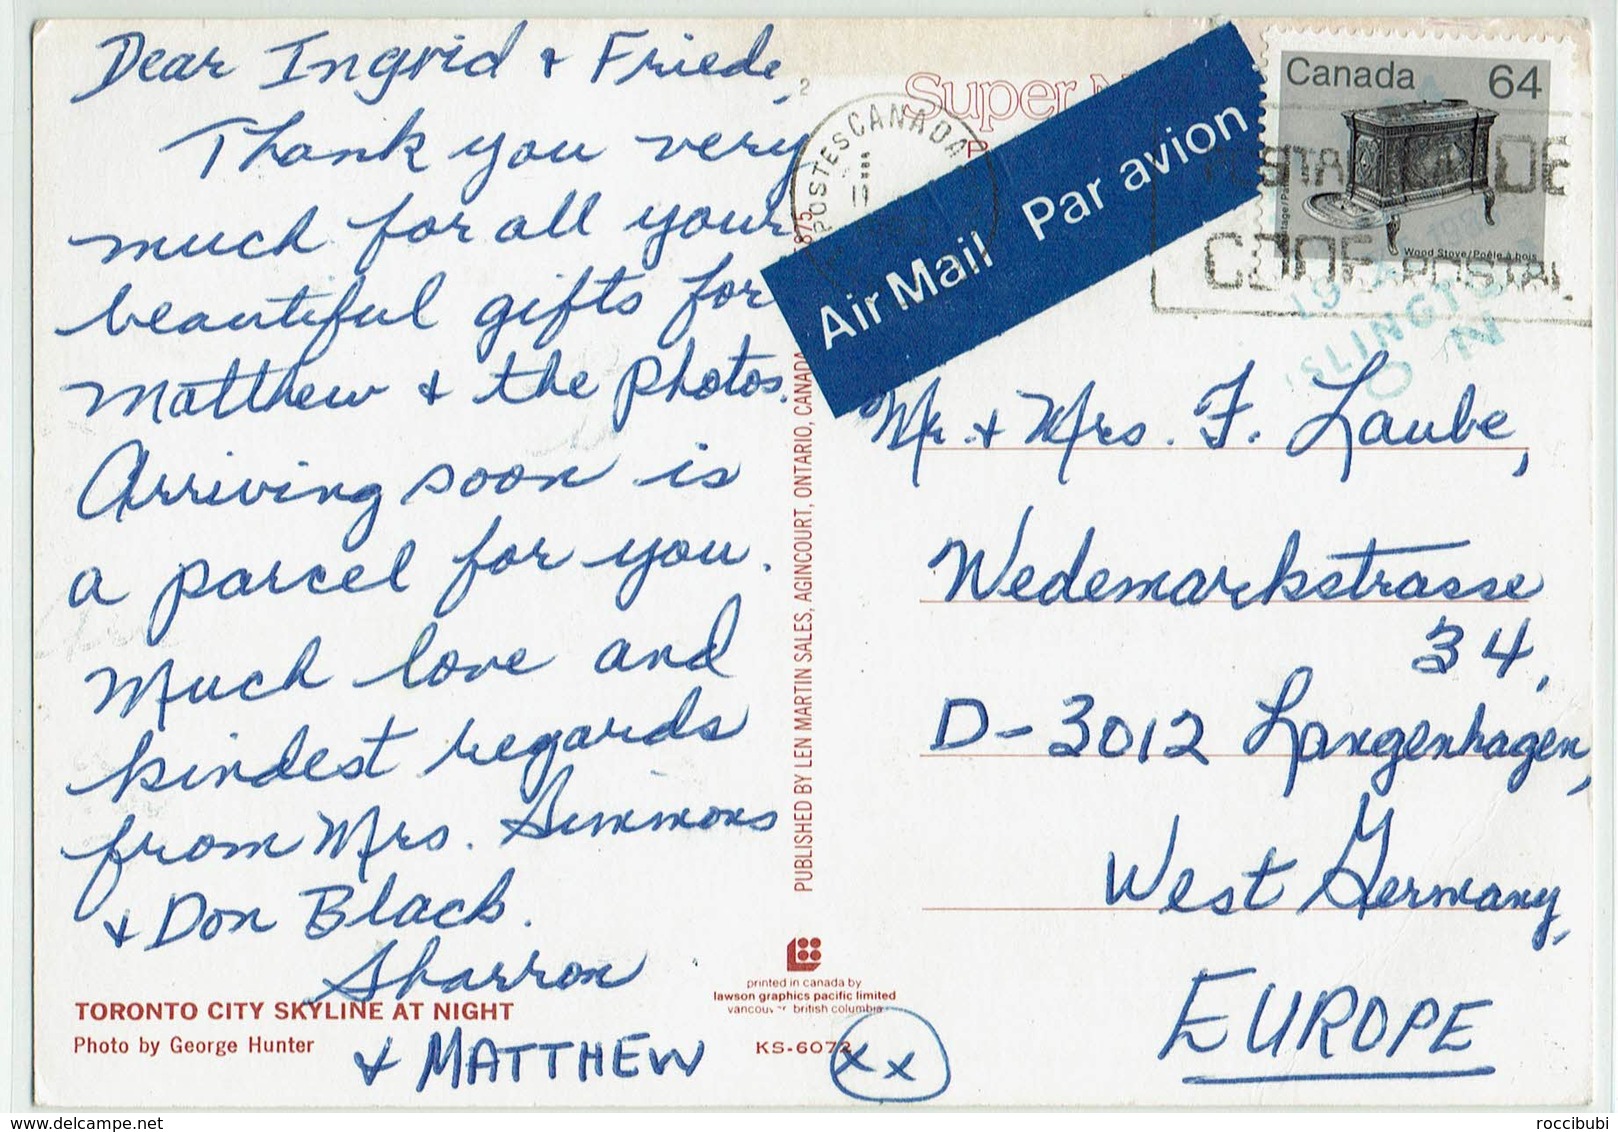 Dear Ingrid & Friede,
Thank you very
much for all your
beautiful gifts for
Matthew & the photos.
Arriving soon is
a parcel for you.
Much love and
kindest regards
from Mrs. Simmons
& Don Black.
Sharron
& MATTHEW
xx
TORONTO CITY SKYLINE AT NIGHT
Photo by George Hunter
2
875
PUBLISHED BY LEN MARTIN SALES, AGINCOURT, ONTARIO, CANADA
printed in canada by
lawson graphics pacific limited
vancouver british columbia
KS-6072
Super
POSTES CANADA
Air Mail Par avion
Canada 64
Wood Stove/Poêle à bois
CODE POSTAL
Mr. & Mrs. F. Laube,
Wedemarkstrasse
34,
D-3012 Langenhagen,
West Germany,
EUROPE
roccibubi